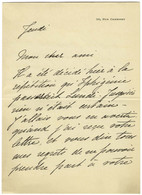 Jeudi
Mon cher ami
Il a été décidé hier à la
répétition qu'Iphigénie
passerait Lundi. Jusqu'ici
rien n'était certain.
J'allais vous en avertir
quand j'ai reçu votre
lettre. Et vous fais tous
mes regrets de ne pouvoir
prendre part à votre